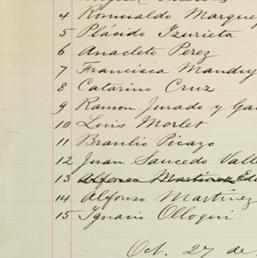 4 Romualdo Marquez
5 Plácido Izurieta
6 Anacleto Perez
7 Francisca Manduj
8 Catarino Cruz
9 Ramon Jurado y Ga
10 Luis Morlet
11 Braulio Picazo
12 Juan Saucedo Valle
13 Alfonso Martinez Ed
14 Alfonso Martinez
15 Ignacio Ollogui
Oct. 27 de